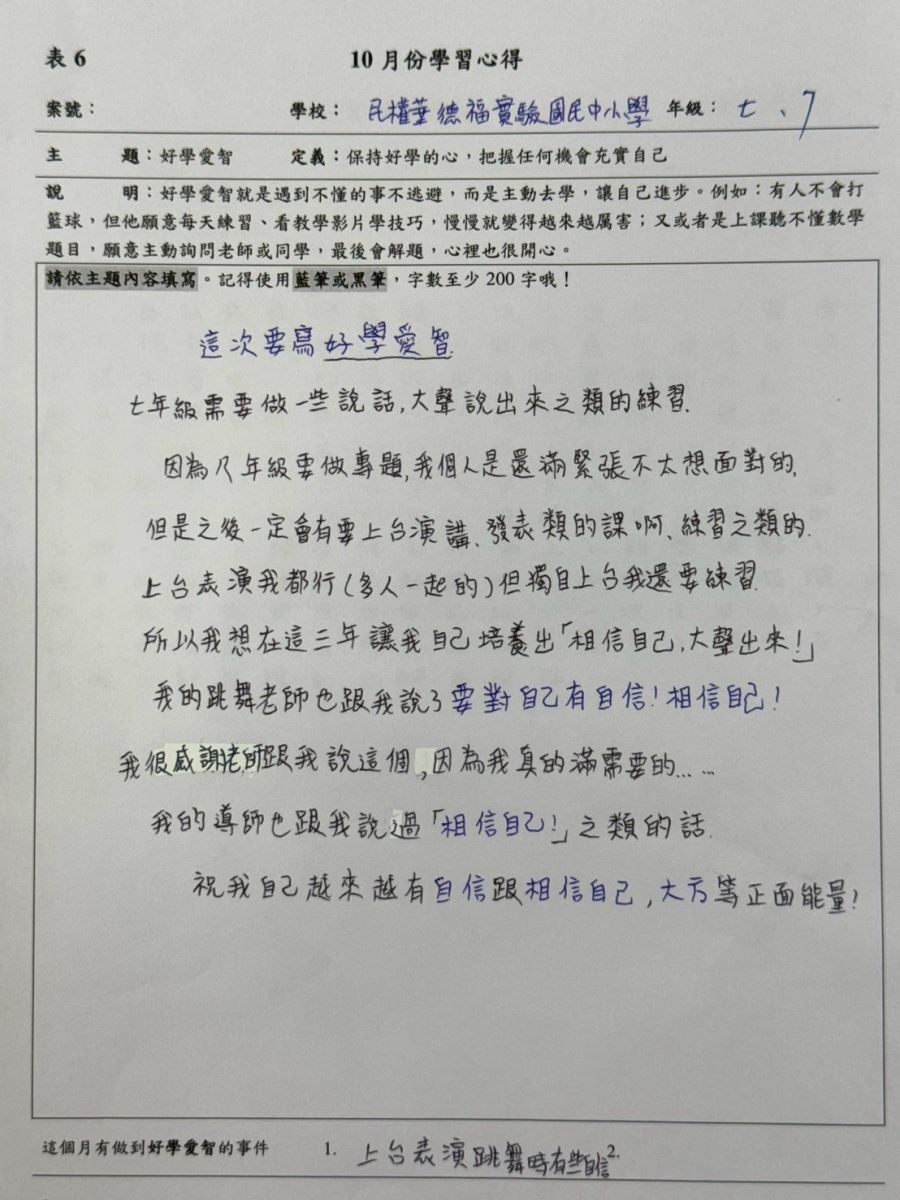 表 6 10 月份學習心得
案號： 學校： 民權華德福實驗國民中小學 年級： 七、7
主 題：好學愛智 定義：保持好學的心，把握任何機會充實自己
說 明：好學愛智就是遇到不懂的事不逃避，而是主動去學，讓自己進步。例如：有人不會打
籃球，但他願意每天練習、看教學影片學技巧，慢慢就變得越來越厲害；又或者是上課聽不懂數學
題目，願意主動詢問老師或同學，最後會解題，心裡也很開心。
請依主題內容填寫。記得使用藍筆或黑筆，字數至少 200 字哦！
這次要寫好學愛智.
七年級需要做一些說話,大聲說出來之類的練習.
因為八年級要做專題,我個人是還滿緊張不太想面對的,
但是之後一定會有要上台演講、發表類的課啊、練習之類的.
上台表演我都行(多人一起的)但獨自上台我還要練習.
所以我想在這三年讓我自己培養出「相信自己,大聲出來!」
我的跳舞老師也跟我說了要對自己有自信!相信自己!
我很感謝老師跟我說這個,因為我真的滿需要的……
我的導師也跟我說過「相信自己!」之類的話.
祝我自己越來越有自信跟相信自己,大方等正面能量!
這個月有做到好學愛智的事件 1. 上台表演跳舞時有些自信 2.